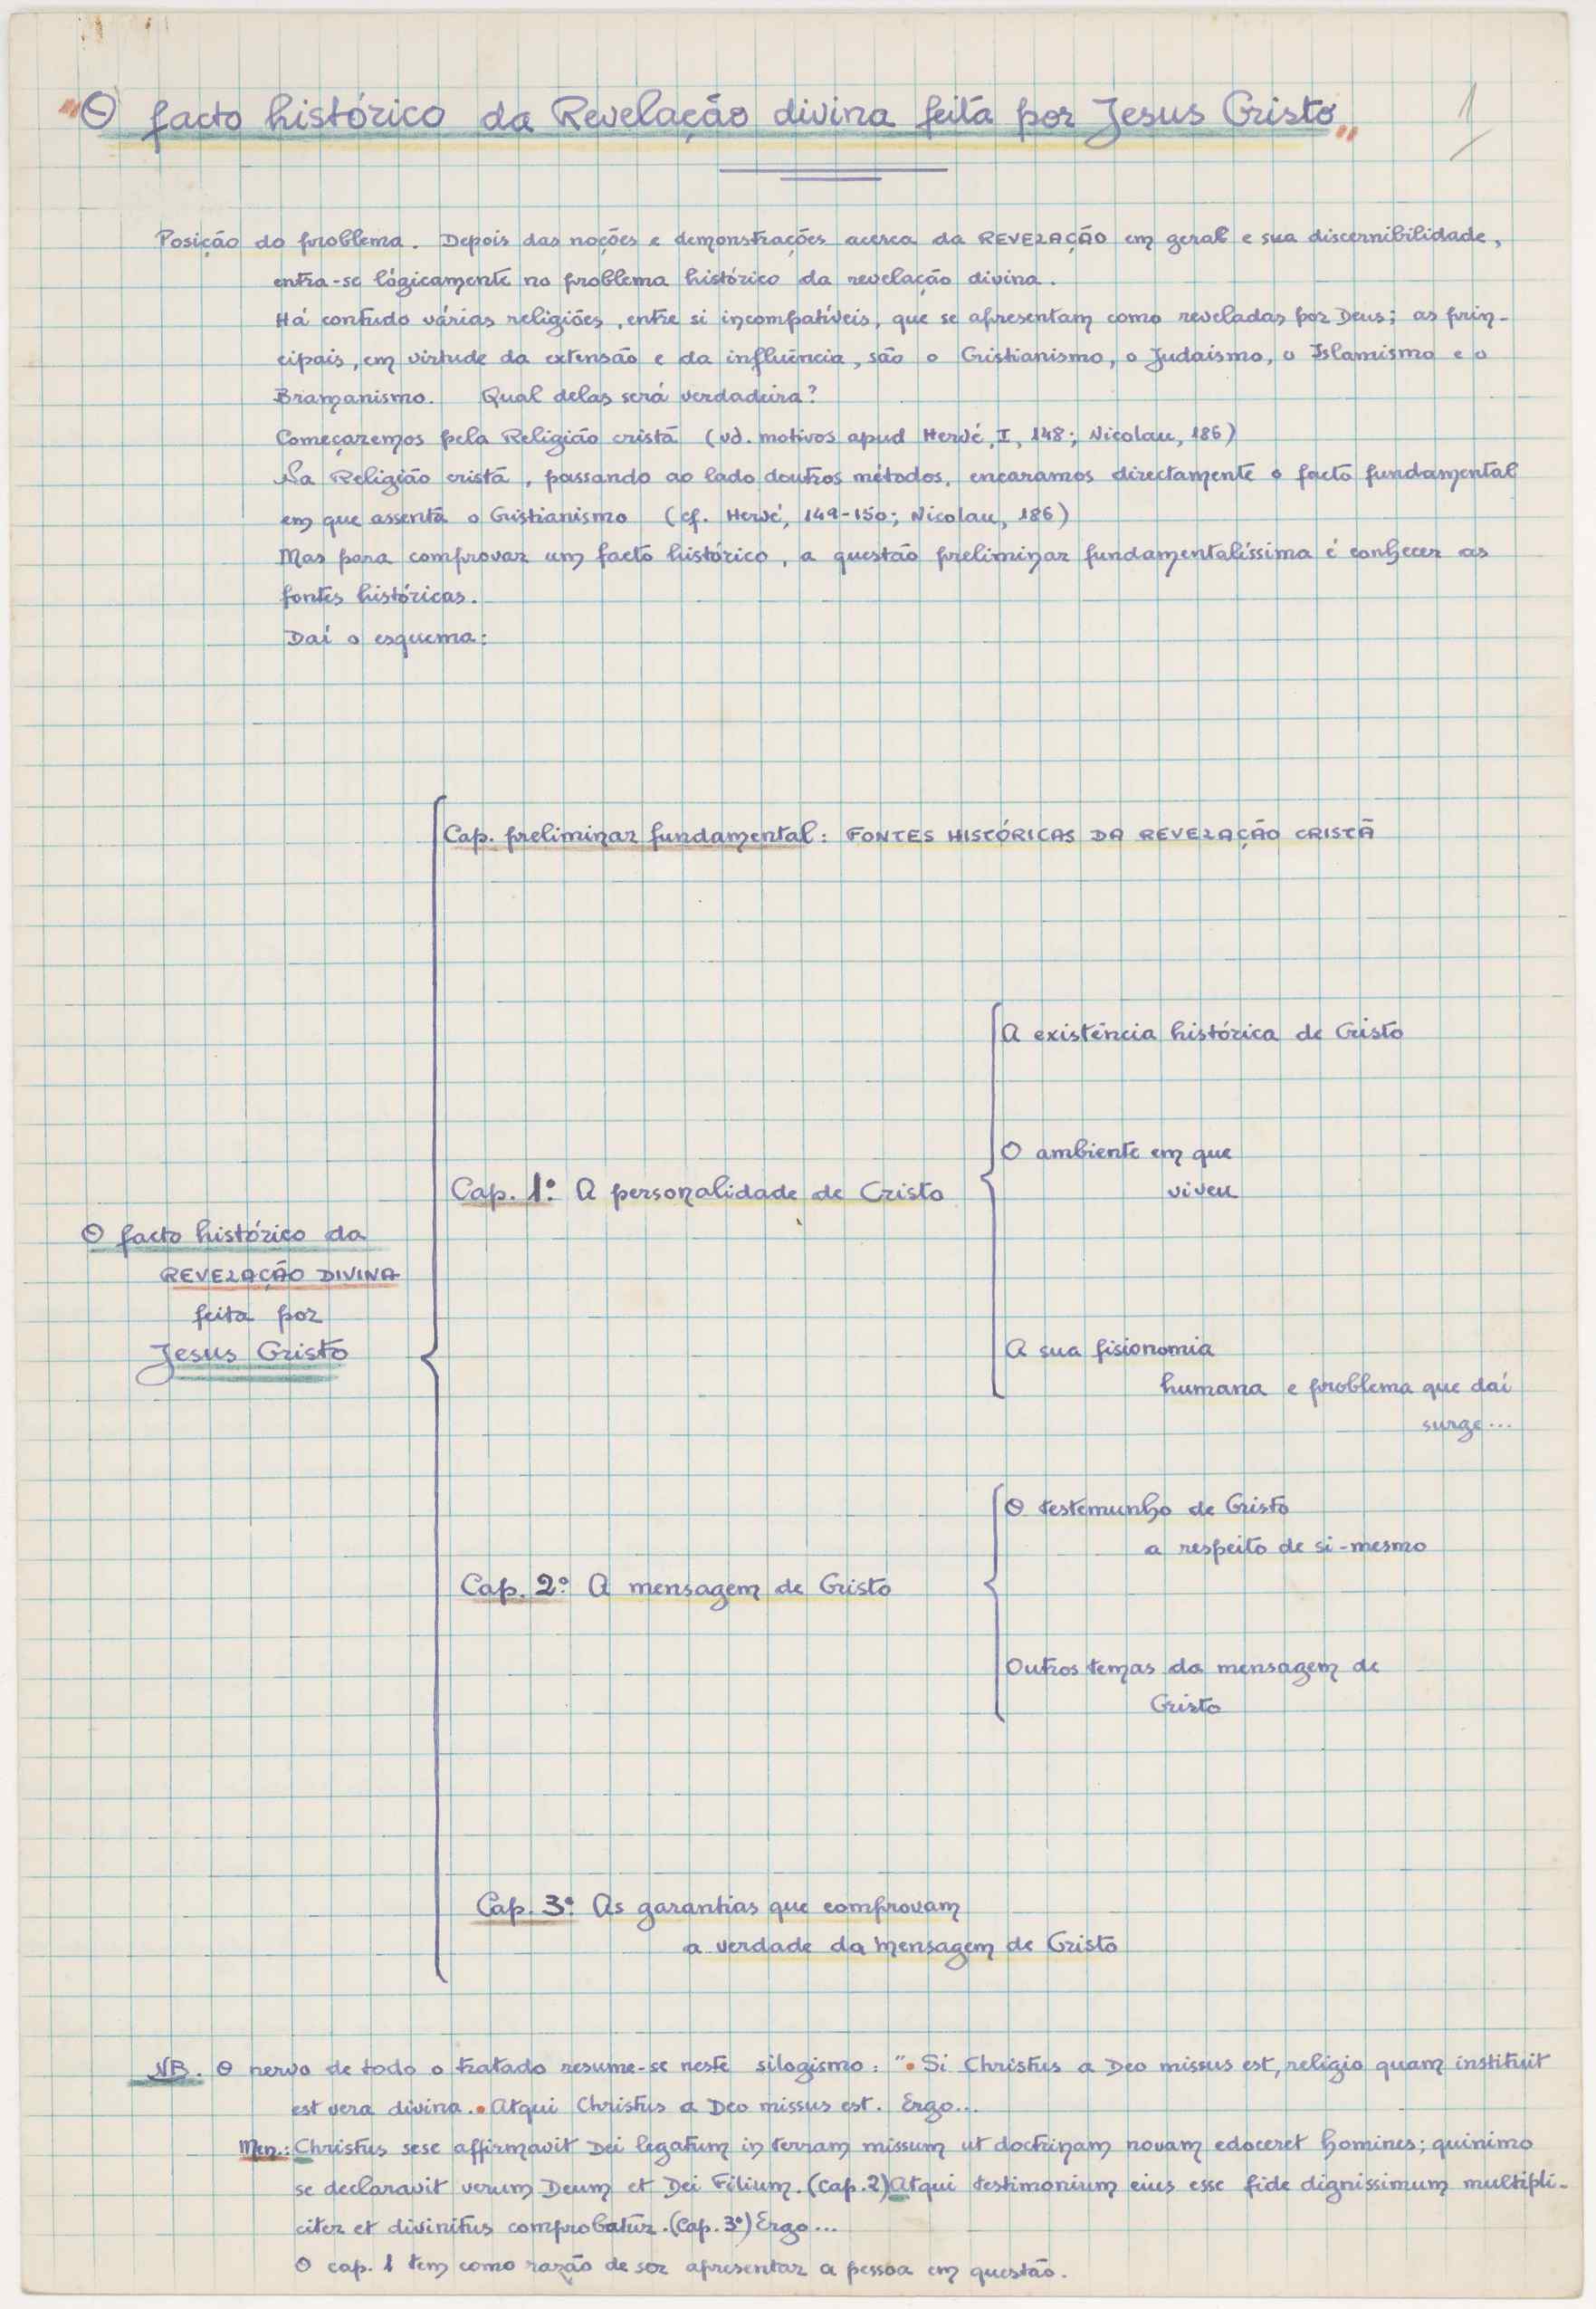 "O facto histórico da Revelação divina feita por Jesus Cristo" 1
Posição do problema. Depois das noções e demonstrações acerca da REVELAÇÃO em geral e sua discernibilidade,
entra-se lògicamente no problema histórico da revelação divina.
Há contudo várias religiões, entre si incompatíveis, que se apresentam como reveladas por Deus; as prin-
cipais, em virtude da extensão e da influência, são o Cristianismo, o Judaísmo, o Islamismo e o
Bramanismo. Qual delas será verdadeira?
Começaremos pela Religião cristã (vd. motivos apud Hervé, I, 148; Nicolau, 186)
Na Religião cristã, passando ao lado doutros métodos, encaramos directamente o facto fundamental
em que assenta o Cristianismo (cf. Hervé, 149-150; Nicolau, 186)
Mas para comprovar um facto histórico, a questão preliminar fundamentalíssima é conhecer as
fontes históricas.
Daí o esquema:
Cap. preliminar fundamental: FONTES HISTÓRICAS DA REVELAÇÃO CRISTÃ
A existência histórica de Cristo
O ambiente em que
viveu
Cap. 1º: A personalidade de Cristo
O facto histórico da
REVELAÇÃO DIVINA
feita por
Jesus Cristo
A sua fisionomia
humana e problema que daí
surge...
O testemunho de Cristo
a respeito de si-mesmo
Cap. 2º: A mensagem de Cristo
Outros temas da mensagem de
Cristo
Cap. 3º: As garantias que comprovam
a verdade da mensagem de Cristo
NB. O nervo de todo o tratado resume-se neste silogismo: "• Si Christus a Deo missus est, religio quam instituit
est vera divina. • Atqui Christus a Deo missus est. Ergo...
Men.: Christus sese affirmavit Dei legatum in terram missum ut doctrinam novam edoceret homines; quinimo
se declaravit verum Deum et Dei Filium. (Cap. 2) Atqui testimonium eius esse fide dignissimum multipli-
citer et divinitus comprobatur. (Cap. 3º) Ergo...
O cap. 1 tem como razão de ser apresentar a pessoa em questão.